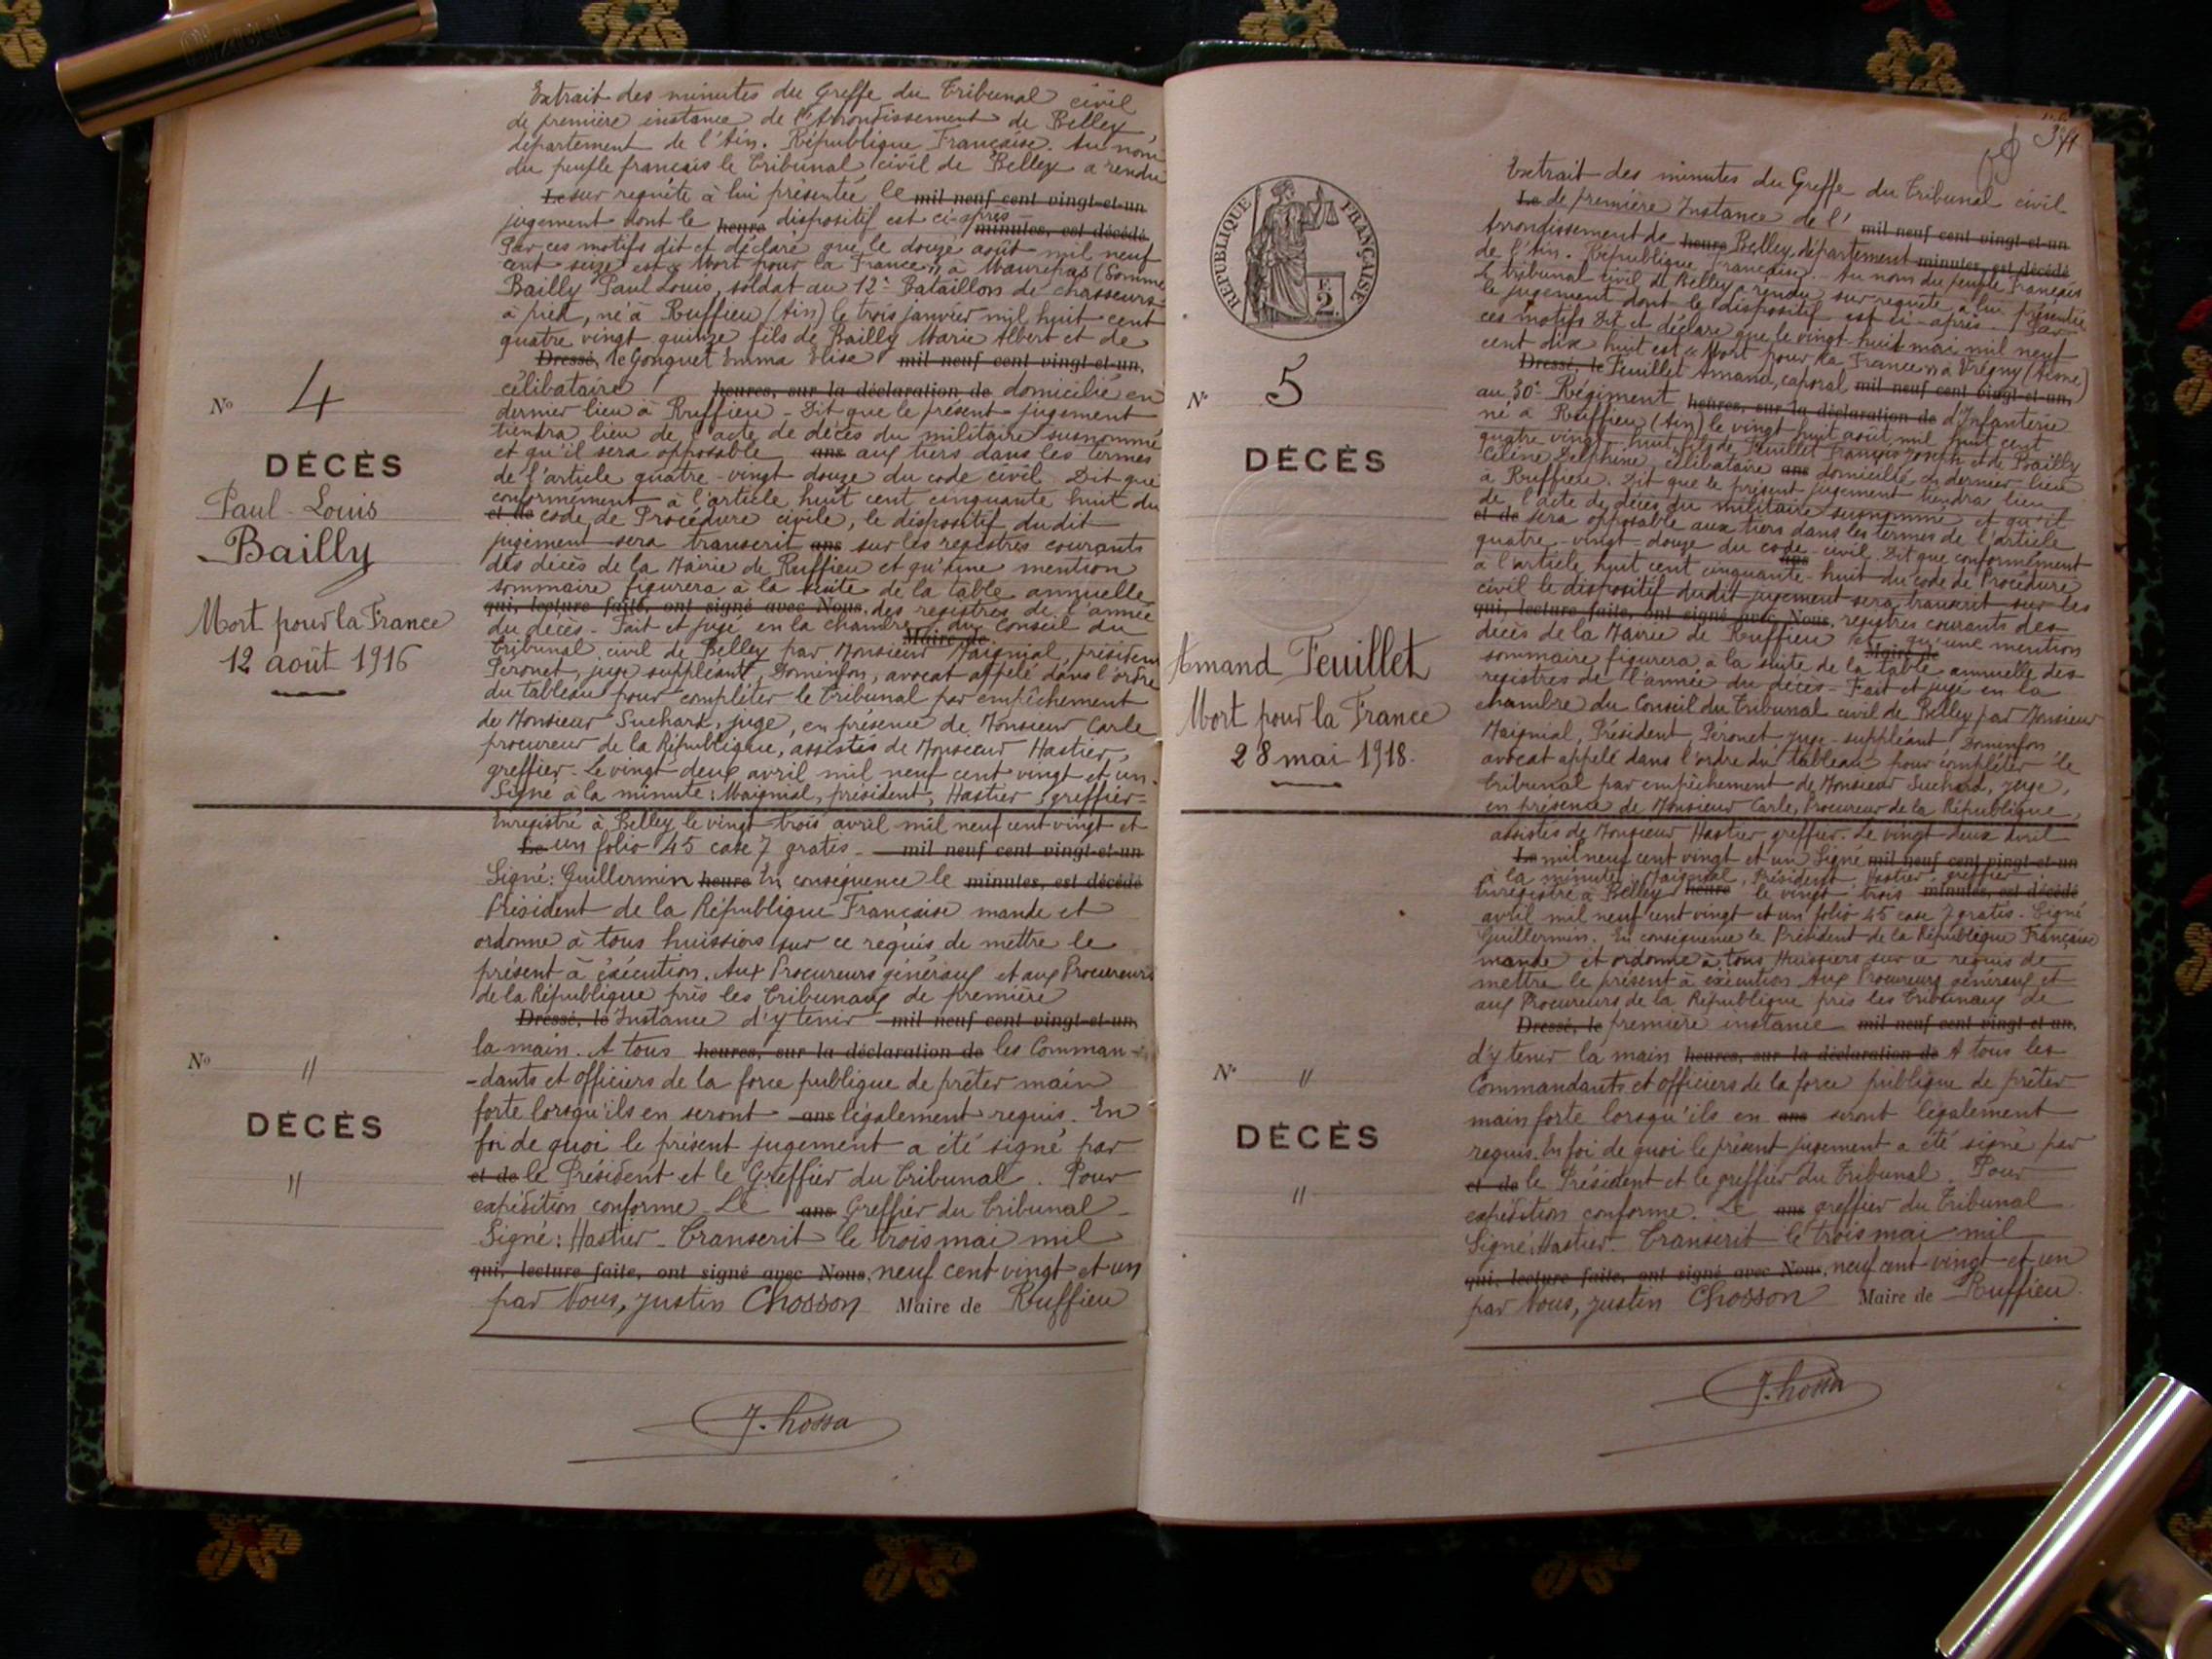 Extrait des minutes du Greffe du Tribunal civil
de première instance de l'Arrondissement de Belley,
département de l'Ain. République Française. Au nom
du peuple français le Tribunal civil de Belley a rendu
Le sur requête à lui présentée le mil neuf cent vingt-et-un
jugement dont le heure dispositif est ci-après minutes, est décédé
Par ces motifs dit et déclare que le douze août mil neuf
cent seize est "Mort pour la France", à Maurepas (Somme
Bailly Paul Louis, soldat au 12e Bataillon de chasseurs
à pied, né à Ruffieu (Ain) le trois janvier mil huit cent
quatre vingt quinze fils de Bailly Marie Albert et de
Dressé, le Gonguet Emma Elise mil neuf cent vingt-et-un,
célibataire heures, sur la déclaration de domicilié en
dernier lieu à Ruffieu - Dit que le présent jugement
tiendra lieu de l'acte de décès du militaire susnommé
et qu'il sera opposable ans aux tiers dans les termes
de l'article quatre-vingt douze du code civil Dit que
conformément à l'article huit cent cinquante huit du
et de code de Procédure civile, le dispositif dudit
jugement sera transcrit ans sur les registres courants
des décès de la Mairie de Ruffieu et qu'une mention
sommaire figurera à la suite de la table annuelle
qui, lecture faite, ont signé avec Nous, des registres de l'année
du décès - Fait et jugé en la chambre du Conseil du
Maire de
Tribunal civil de Belley par Monsieur Maignial, président
Péronet, juge suppléant, Dominjon, avocat appelé dans l'ordre
du tableau pour compléter le Tribunal par empêchement
de Monsieur Suchard, juge, en présence de Monsieur Carle
procureur de la République, assistés de Monsieur Hastier,
greffier. Le vingt deux avril mil neuf cent vingt et un.
Signé à la minute: Maignial, président, Hastier, greffier-
Enregistré à Belley, le vingt-trois avril mil neuf cent vingt et
Le un folio 45 case 7 gratis - mil neuf cent vingt-et-un
Signé: Guillermin heure En conséquence le minutes, est décédé
Président de la République Française mande et
ordonne à tous huissiers sur ce requis de mettre le
présent à éxécution. Aux Procureurs généraux et aux Procureurs
de la République près les Tribunaux de première
Dressé, le Instance d'y tenir mil neuf cent vingt-et-un,
la main. A tous heures, sur la déclaration de les Comman-
-dants et officiers de la force publique de prêter main
forte lorsqu'ils en seront ans légalement requis. En
foi de quoi le présent jugement a été signé par
et de le Président et le Greffier du Tribunal. Pour
expédition conforme. Le ans Greffier du Tribunal -
Signé: Hastier - Transcrit le trois mai mil
qui, lecture faite, ont signé avec Nous, neuf cent vingt et un
par Nous, Justin Chosson Maire de Ruffieu
J. Chosson
No 4
DÉCÈS
Paul-Louis
Bailly
Mort pour la France
12 août 1916
No "
DÉCÈS
"
Extrait des minutes du Greffe du Tribunal civil
Le de première Instance de l' mil neuf cent vingt-et-un
Arrondissement de heure Belley, département minutes, est décédé
de l'Ain. République Française. Au nom du peuple Français
le Tribunal civil de Belley a rendu sur requête à lui présentée
le jugement dont le dispositif est ci-après. Par
ces motifs Dit et déclare que le vingt-huit mai mil neuf
cent dix huit est "Mort pour la France" à Vrégny (Aisne)
Dressé, le Feuillet Amand, caporal mil neuf cent vingt-et-un,
au 30e Régiment heures, sur la déclaration de d'Infanterie
né à Ruffieu (Ain) le vingt huit août mil huit cent
quatre vingt-huit fils de Feuillet François Joseph et de Bailly
Céline Delphine, célibataire ans domicilié en dernier lieu
à Ruffieu. Dit que le présent jugement tiendra lieu
de l'acte de décès du militaire susnommé et qu'il
et de sera opposable aux tiers dans les termes de l'article
quatre-vingt-douze du code civil. Dit que conformément
ans
à l'article huit cent cinquante-huit du code de Procédure
civil le dispositif dudit jugement sera transcrit sur les
qui, lecture faite, ont signé avec Nous, registres courants des
décès de la Mairie de Ruffieu et qu'une mention
Maire de
sommaire figurera à la suite de la table annuelle des
registres de l'année du décès - Fait et jugé en la
chambre du Conseil du Tribunal civil de Belley par Monsieur
Maignial, Président, Péronet, juge-suppléant, Dominjon
avocat appelé dans l'ordre du tableau pour compléter le
Tribunal par empêchement de Monsieur Suchard, juge,
en présence de Monsieur Carle, Procureur de la République,
assistés de Monsieur Hastier greffier. Le vingt deux avril
Le mil neuf cent vingt et un Signé mil neuf cent vingt-et-un
à la minute: Maignial, Président Hastier greffier.
Enregistré à Belley heure le vingt trois minutes, est décédé
avril mil neuf cent vingt et un folio 45 case 7 gratis. Signé
Guillermin. En conséquence le Président de la République Française
mande et ordonne à tous Huissiers sur ce requis de
mettre le présent à éxécution Aux Procureurs généraux et
aux Procureurs de la République près les Tribunaux de
Dressé, le première instance mil neuf cent vingt-et-un,
d'y tenir la main heures, sur la déclaration de A tous les
Commandants et officiers de la force publique de prêter
main forte lorsqu'ils en ans seront légalement
requis. En foi de quoi le présent jugement a été signé par
et de le Président et le greffier du Tribunal. Pour
expédition conforme. Le ans greffier du Tribunal
Signé: Hastier. Transcrit le trois mai mil
qui, lecture faite, ont signé avec Nous, neuf cent vingt et un
par Nous, Justin Chosson Maire de Ruffieu.
J. Chosson
RÉPUBLIQUE FRANÇAISE
E
2
No 5
DÉCÈS
Amand Feuillet
Mort pour la France
28 mai 1918.
No "
DÉCÈS
"